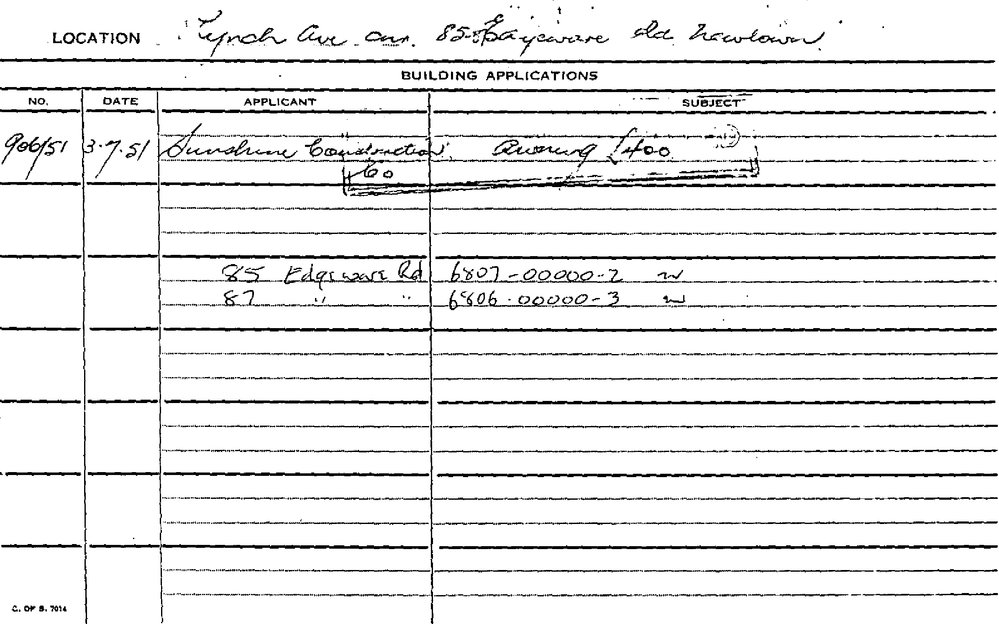 LOCATION Lynch Ave cnr. 85 Edgeware Rd Newtown
BUILDING APPLICATIONS
NO. DATE APPLICANT SUBJECT
906/51 3.7.51 Sunshine Construction Awning £400
Co
85 Edgeware Rd 6807-00000-2
87 " " 6806-00000-3
C. OF S. 7014